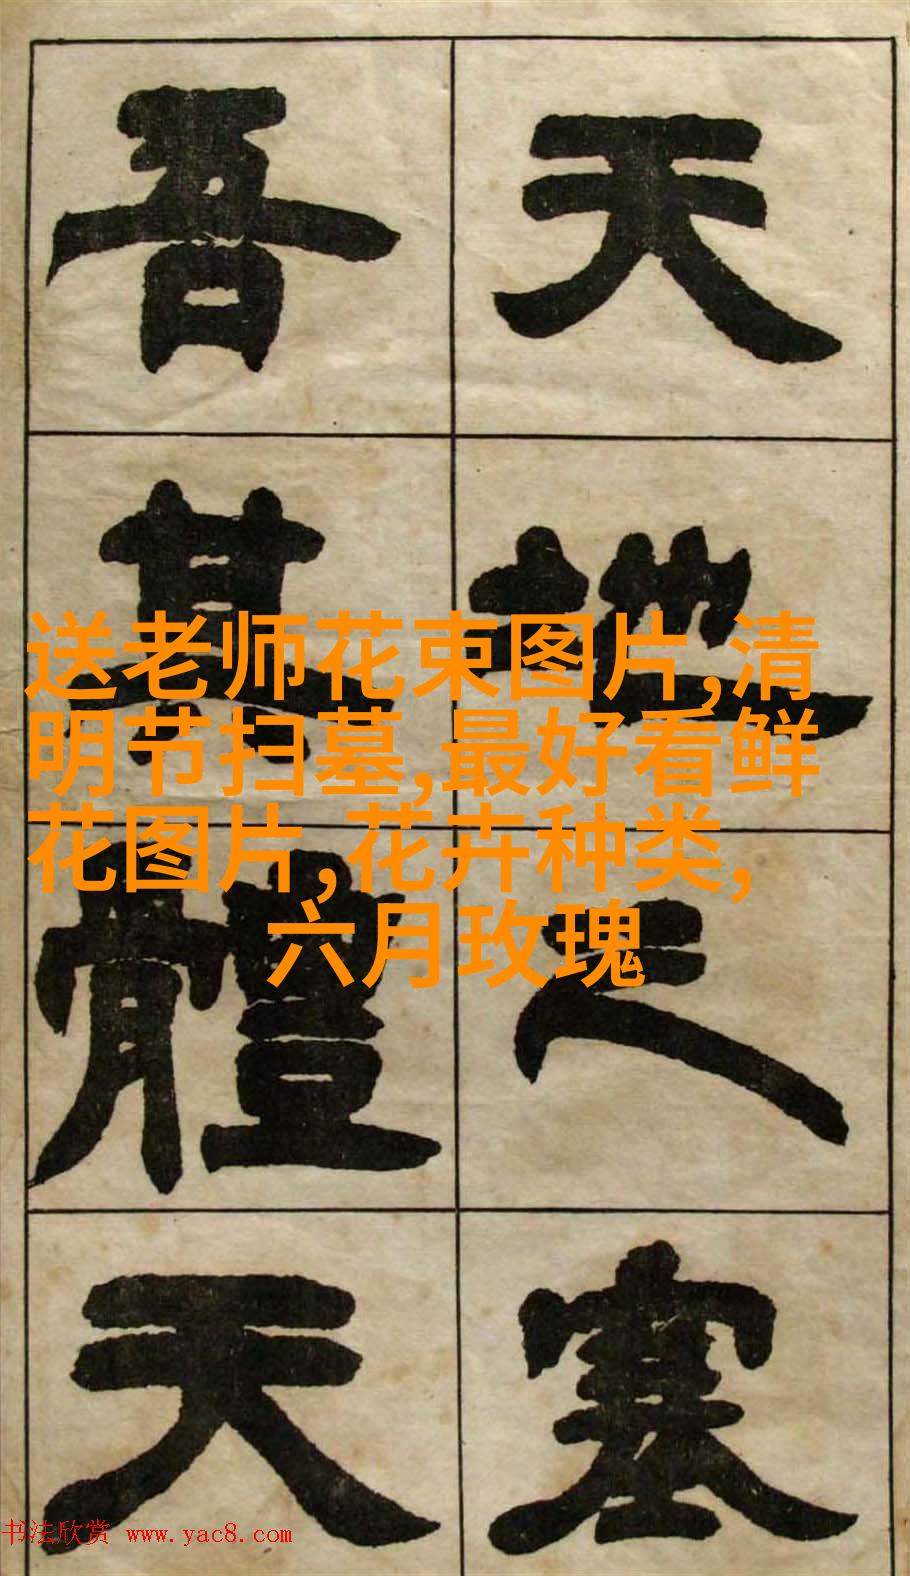 天地之塞
吾其體天
送老师花束图片,清
明节扫墓,最好看鲜
花图片,花卉种类,
六月玫瑰
书法欣赏 www.yac8.com